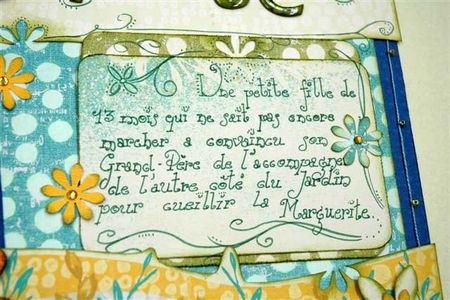 Une petite fille de
13 mois qui ne sait pas encore
marcher a convaincu son
Grand-Père de l'accompagner
de l'autre côté du Jardin
pour cueillir la Marguerite.